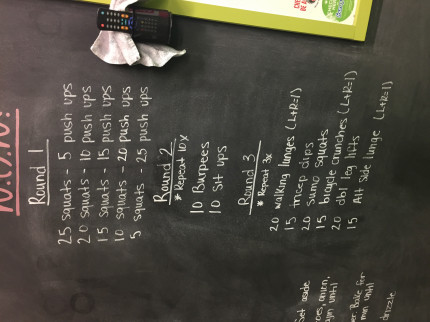 W.O.D!
Round 1
25 squats - 5 push ups
20 squats - 10 push ups
15 squats - 15 push ups
10 squats - 20 push ups
5 squats - 25 push ups
Round 2
* Repeat 10x
10 Burpees
10 Sit ups
Round 3
* Repeat 3x
20 walking lunges (L+R=1)
15 tricep dips
20 sumo squats
15 bicycle crunches (L+R=1)
20 dbl leg lifts
15 Alt Side lunge (L+R=1)
Set aside
onion,
until
Bake for
min until
drizzle